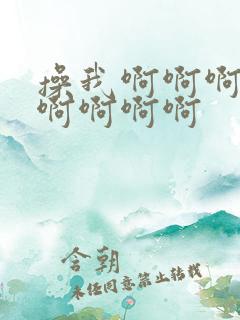 操我 啊啊啊
啊啊啊啊
含朝
未经同意禁止转载